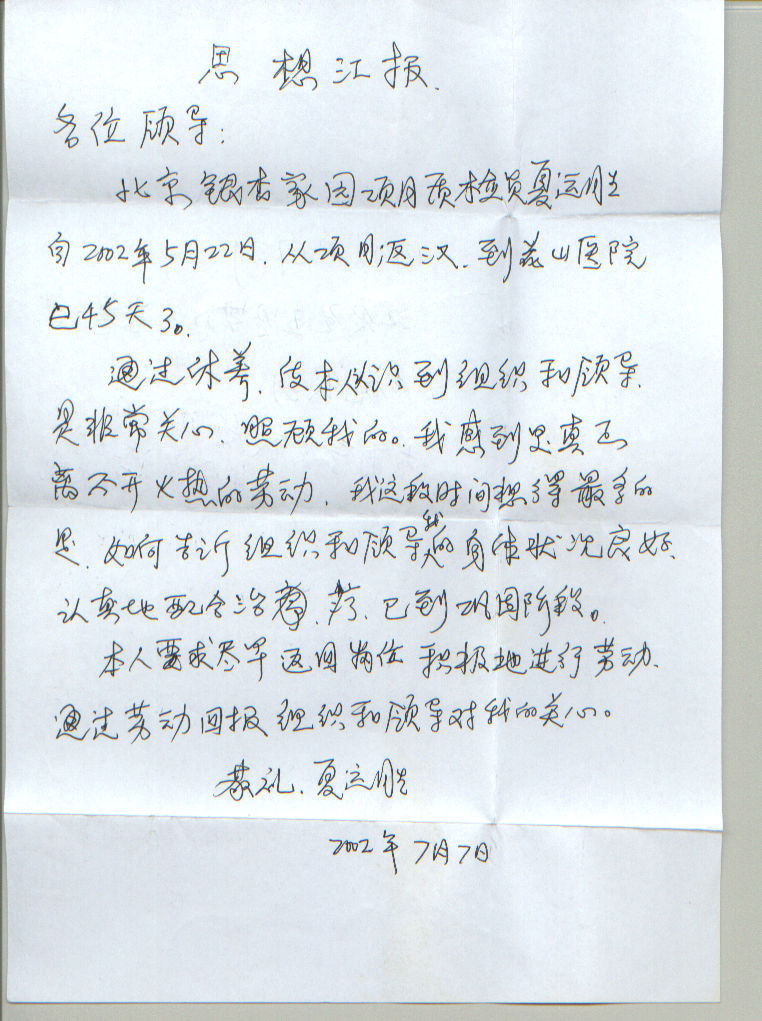 思想汇报.
各位领导:
北京银杏家园项目质检员夏运胜
自2002年5月22日.从项目返汉.到 山医院
已45天了。
通过休养.使本人认识到组织和领导.
是非常关心.照顾我的。我感到是真正
离不开火热的劳动.我这段时间想得最多的
是.如何告诉组织和领导我的身体状况良好.
认真地配合治疗.已到巩固阶段。
本人要求尽早返回岗位积极地进行劳动.
通过劳动回报组织和领导对我的关心。
敬礼.夏运胜
2002年7月7日